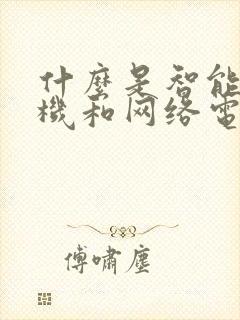 什麼是智能
機和网络電
傅嘯塵